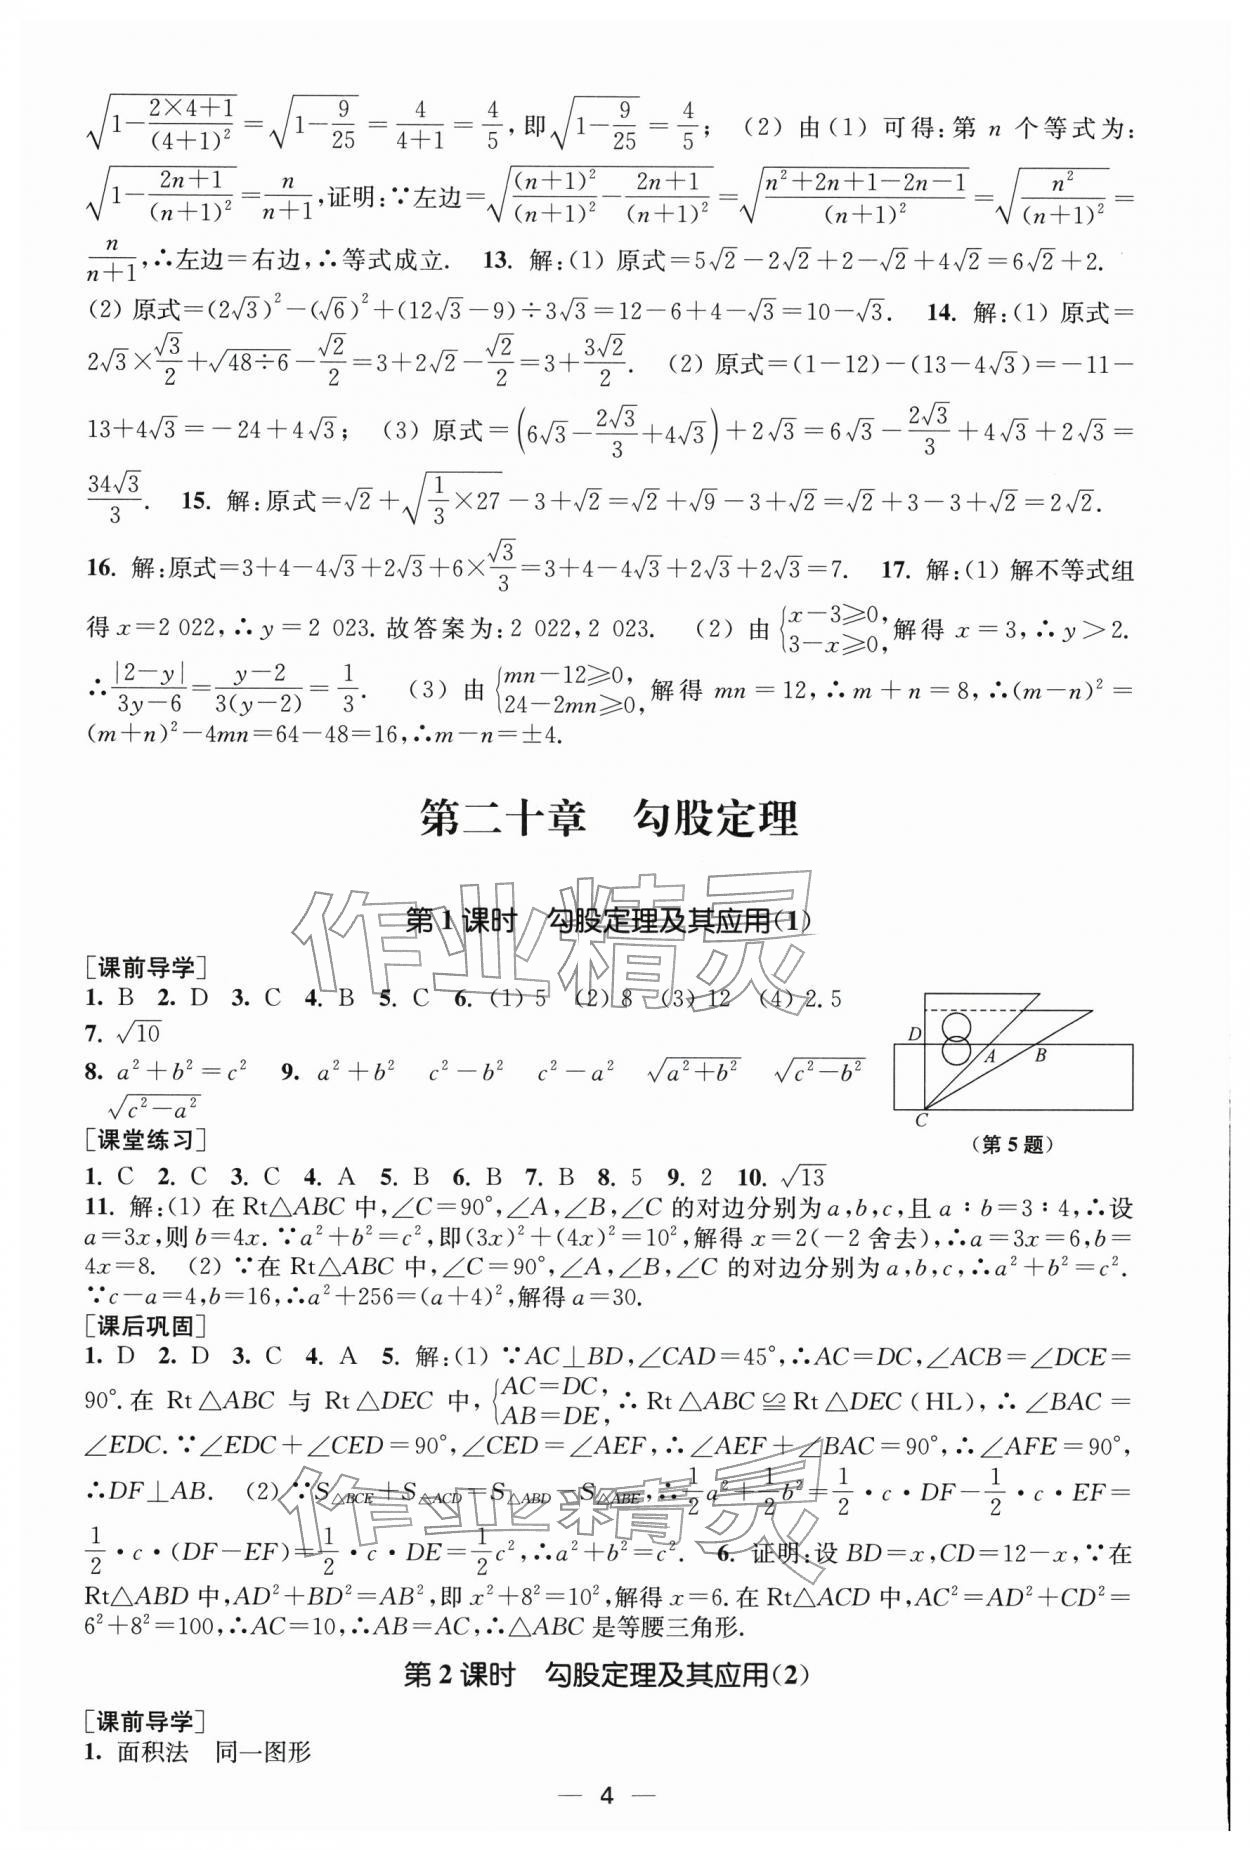 $\sqrt{1-\frac{2×4+1}{(4+1)^2}}=\sqrt{1-\frac{9}{25}}=\frac{4}{4+1}=\frac{4}{5}$,即$\sqrt{1-\frac{9}{25}}=\frac{4}{5}$; (2) 由(1) 可得:第 n 个等式为:
$\sqrt{1-\frac{2n+1}{(n+1)^2}}=\frac{n}{n+1}$,证明:∵左边=$\sqrt{\frac{(n+1)^2}{(n+1)^2}-\frac{2n+1}{(n+1)^2}}=\sqrt{\frac{n^2+2n+1-2n-1}{(n+1)^2}}=\sqrt{\frac{n^2}{(n+1)^2}}$=
$\frac{n}{n+1}$,∴左边=右边,∴等式成立. 13. 解:(1) 原式=5√2-2√2+2-√2+4√2=6√2+2.
(2) 原式=(2√3)²-(√6)²+(12√3-9)÷3√3=12-6+4-√3=10-√3. 14. 解:(1) 原式=
2√3×$\frac{√3}{2}$+$\sqrt{48÷6}$-$\frac{√2}{2}$=3+2√2-$\frac{√2}{2}$=3+$\frac{3√2}{2}$. (2) 原式=(1-12)-(13-4√3)=-11-
13+4√3=-24+4√3; (3) 原式=(6√3-$\frac{2√3}{3}$+4√3)+2√3=6√3-$\frac{2√3}{3}$+4√3+2√3=
$\frac{34√3}{3}$. 15. 解:原式=√2+$\sqrt{\frac{1}{3}×27}$-3+√2=√2+√9-3+√2=√2+3-3+√2=2√2.
16. 解:原式=3+4-4√3+2√3+6×$\frac{√3}{3}$=3+4-4√3+2√3+2√3=7. 17. 解:(1) 解不等式组
得 x=2 022,∴y=2 023.故答案为:2 022,2 023. (2) 由{x-3≥0, 3-x≥0,解得 x=3,∴y>2.
∴$\frac{|2-y|}{3y-6}=\frac{y-2}{3(y-2)}=\frac{1}{3}$. (3) 由{mn-12≥0, 24-2mn≥0,解得 mn=12,∴m+n=8,∴(m-n)²=
(m+n)²-4mn=64-48=16,∴m-n=±4.
第二十章 勾股定理
第1课时 勾股定理及其应用(1)
[课前导学]
1. B 2. D 3. C 4. B 5. C 6. (1) 5 (2) 8 (3) 12 (4) 2.5
7. √10
8. a²+b²=c² 9. a²+b² c²-b² c²-a² $\sqrt{a^2+b^2}$ $\sqrt{c^2-b^2}$
$\sqrt{c^2-a^2}$
D A B
C
(第5题)
[课堂练习]
1. C 2. C 3. C 4. A 5. B 6. B 7. B 8. 5 9. 2 10. √13
11. 解:(1) 在 Rt△ABC 中,∠C=90°,∠A,∠B,∠C 的对边分别为 a,b,c,且 a∶b=3∶4,∴设
a=3x,则 b=4x.∵a²+b²=c²,即(3x)²+(4x)²=10²,解得 x=2(-2 舍去),∴a=3x=6,b=
4x=8. (2) ∵在 Rt△ABC 中,∠C=90°,∠A,∠B,∠C 的对边分别为 a,b,c,∴a²+b²=c².
∵c-a=4,b=16,∴a²+256=(a+4)²,解得 a=30.
[课后巩固]
1. D 2. D 3. C 4. A 5. 解:(1) ∵AC⊥BD,∠CAD=45°,∴AC=DC,∠ACB=∠DCE=
90°.在 Rt△ABC 与 Rt△DEC 中,{AC=DC, AB=DE,∴Rt△ABC≌Rt△DEC(HL),∴∠BAC=
∠EDC.∵∠EDC+∠CED=90°,∠CED=∠AEF,∴∠AEF+∠BAC=90°,∴∠AFE=90°,
∴DF⊥AB. (2) ∵S△BCE+S△ACD=S△ABD-S△ABE,∴$\frac{1}{2}$a²+$\frac{1}{2}$b²=$\frac{1}{2}$·c·DF-$\frac{1}{2}$·c·EF=
$\frac{1}{2}$·c·(DF-EF)=$\frac{1}{2}$·c·DE=$\frac{1}{2}$c²,∴a²+b²=c². 6. 证明:设 BD=x,CD=12-x,∵在
Rt△ABD 中,AD²+BD²=AB²,即 x²+8²=10²,解得 x=6.在 Rt△ACD 中,AC²=AD²+CD²=
6²+8²=100,∴AC=10,∴AB=AC,∴△ABC 是等腰三角形.
第2课时 勾股定理及其应用(2)
[课前导学]
1. 面积法 同一图形
— 4 —
作业精灵
作业精灵